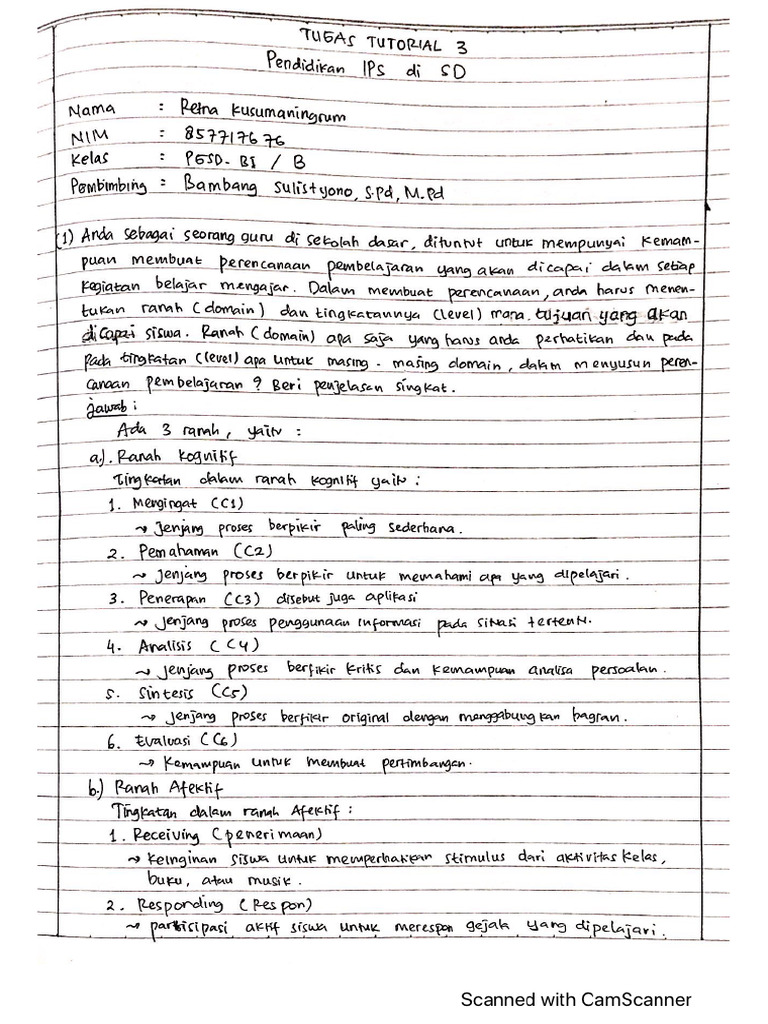 TUGAS TUTORIAL 3
Pendidikan IPS di SD
Nama : Retna Kusumaningrum
NIM : 857717676
Kelas : PGSD-BI / B
Pembimbing : Bambang Sulistyono, S.Pd, M.Pd
(1) Anda sebagai seorang guru di sekolah dasar, dituntut untuk mempunyai kemam-
puan membuat perencanaan pembelajaran yang akan dicapai dalam setiap
kegiatan belajar mengajar. Dalam membuat perencanaan, anda harus menen-
tukan ranah (domain) dan tingkatannya (level) mana tujuan yang akan
dicapai siswa. Ranah (domain) apa saja yang harus anda perhatikan dan pada
pada tingkatan (level) apa untuk masing - masing domain, dalam menyusun peren-
canaan pembelajaran ? Beri penjelasan singkat.
Jawab :
Ada 3 ranah, yaitu :
a.). Ranah Kognitif
Tingkatan dalam ranah kognitif yaitu :
1. Mengingat (C1)
→ Jenjang proses berpikir paling sederhana.
2. Pemahaman (C2)
→ Jenjang proses berpikir untuk memahami apa yang dipelajari.
3. Penerapan (C3) disebut juga aplikasi
→ Jenjang proses penggunaan informasi pada situasi tertentu.
4. Analisis (C4)
→ Jenjang proses berfikir kritis dan kemampuan analisa persoalan.
5. Sintesis (C5)
→ Jenjang proses berfikir original dengan menggabungkan bagian.
6. Evaluasi (C6)
→ Kemampuan untuk membuat pertimbangan.
b.) Ranah Afektif
Tingkatan dalam ranah Afektif :
1. Receiving (penerimaan)
→ Keinginan siswa untuk memperhatikan stimulus dari aktivitas kelas,
buku, atau musik.
2. Responding (Respon)
→ partisipasi aktif siswa untuk merespon gejala yang dipelajari.
Scanned with CamScanner